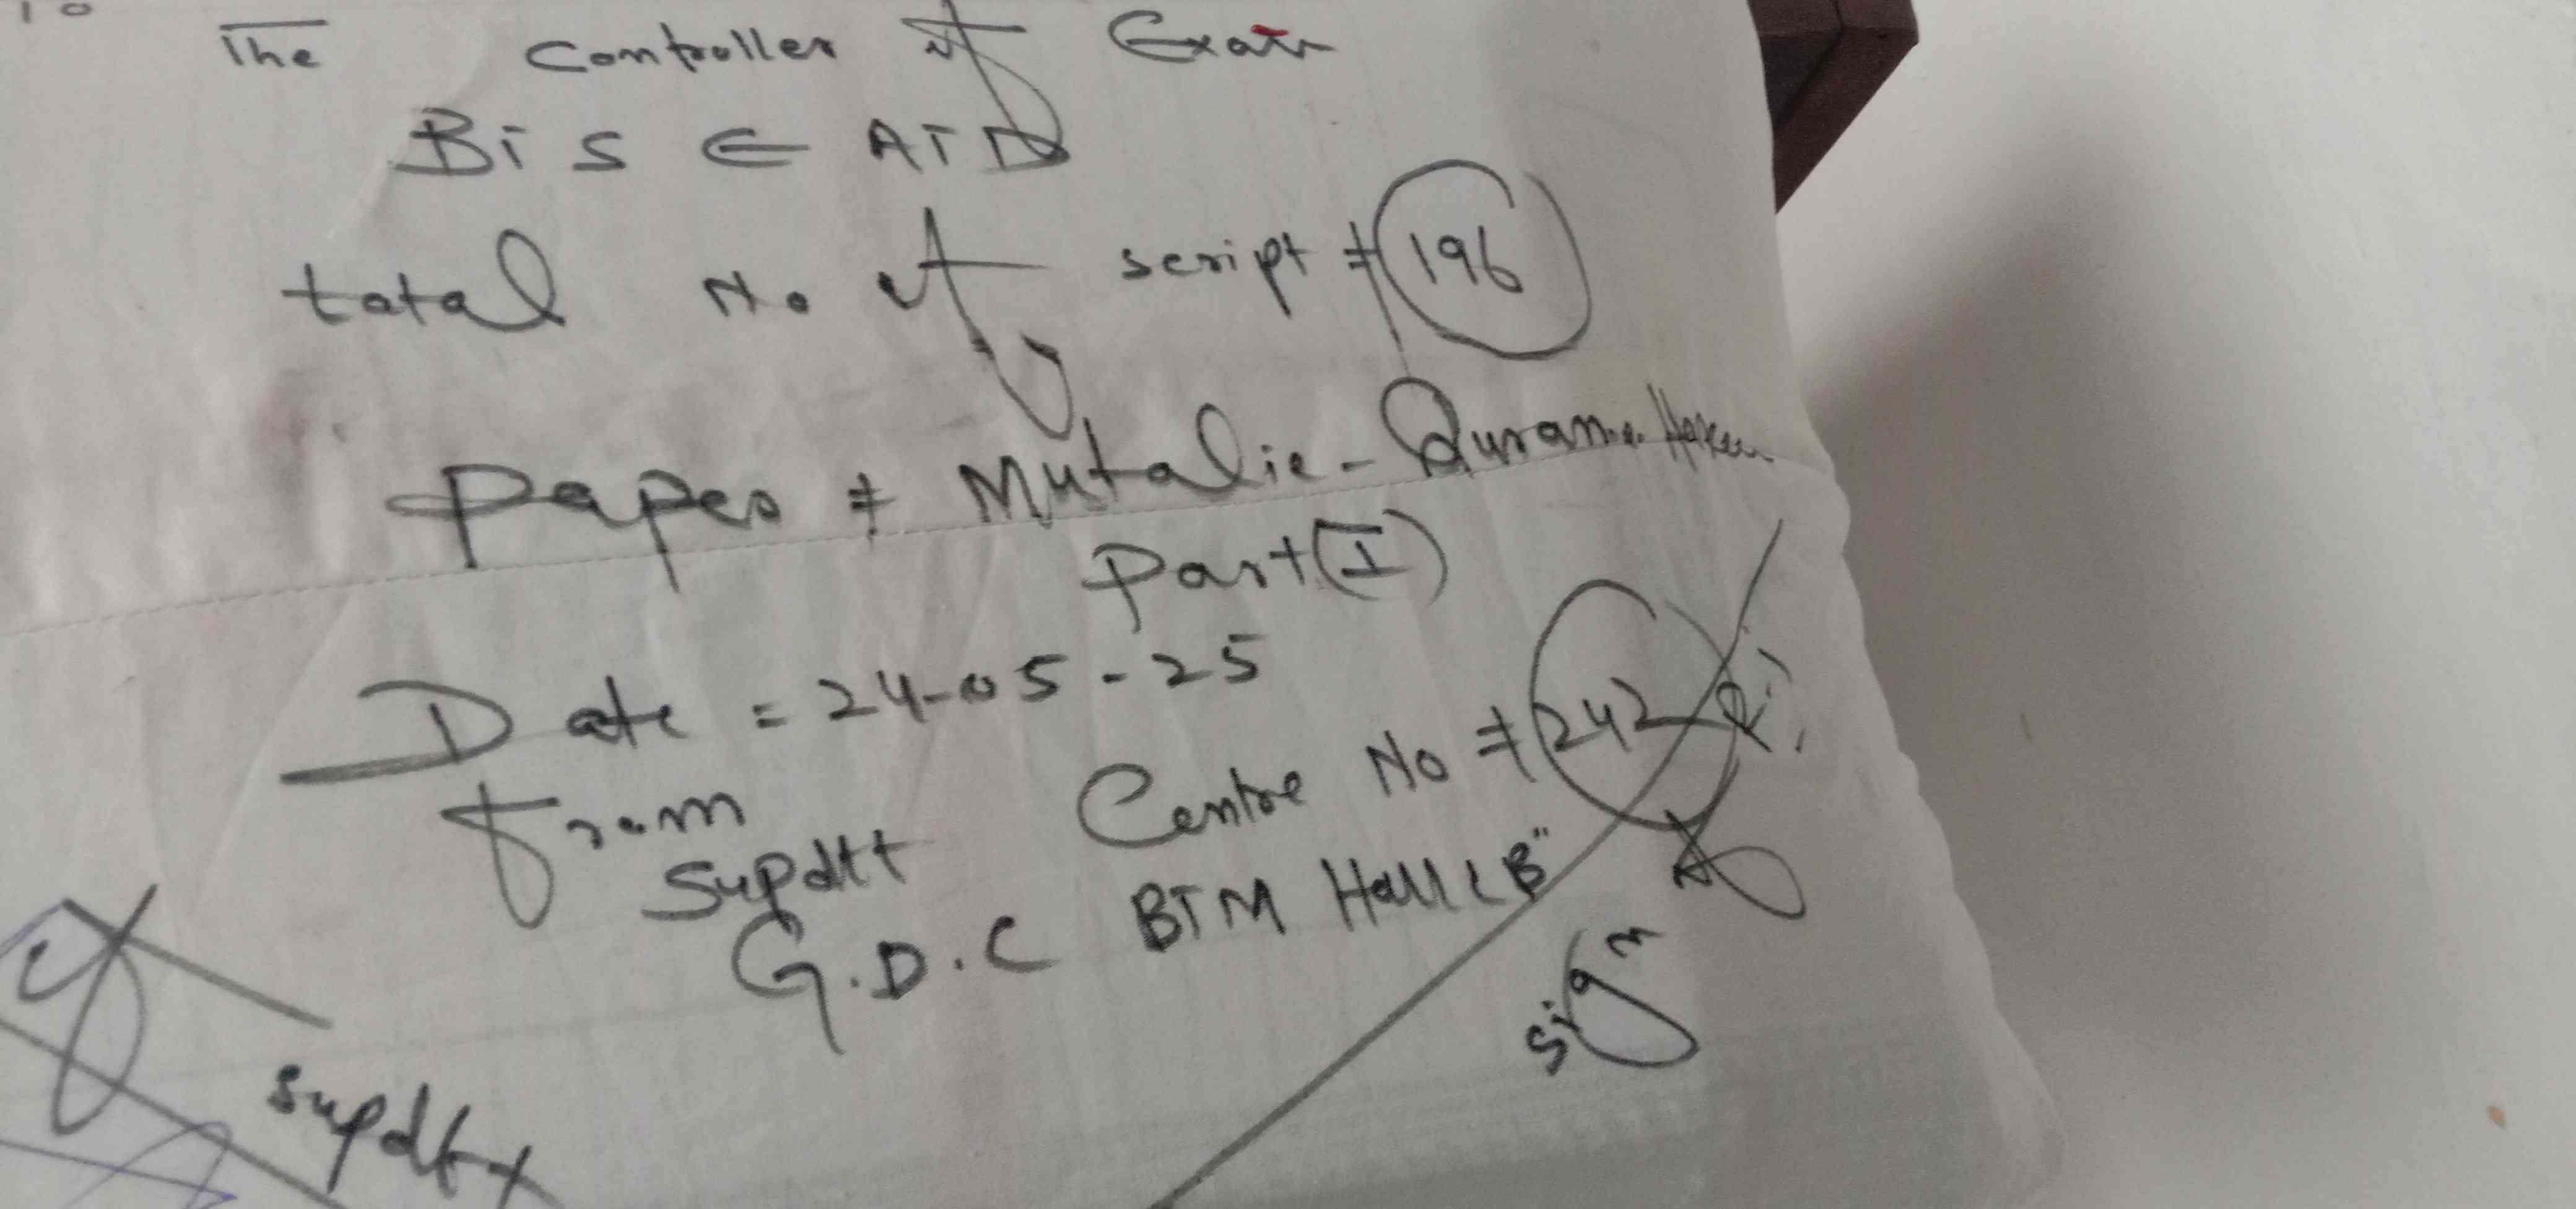 To
The Controller of Exam
BISE ATD
total No of script # 196
Paper # Mutalia-Quran-e-Hakeem
Part (I)
Date = 24-05-25
from Centre No # 242
Supdtt
G.D.C BTM Hall "B"
Sign
Supdtt